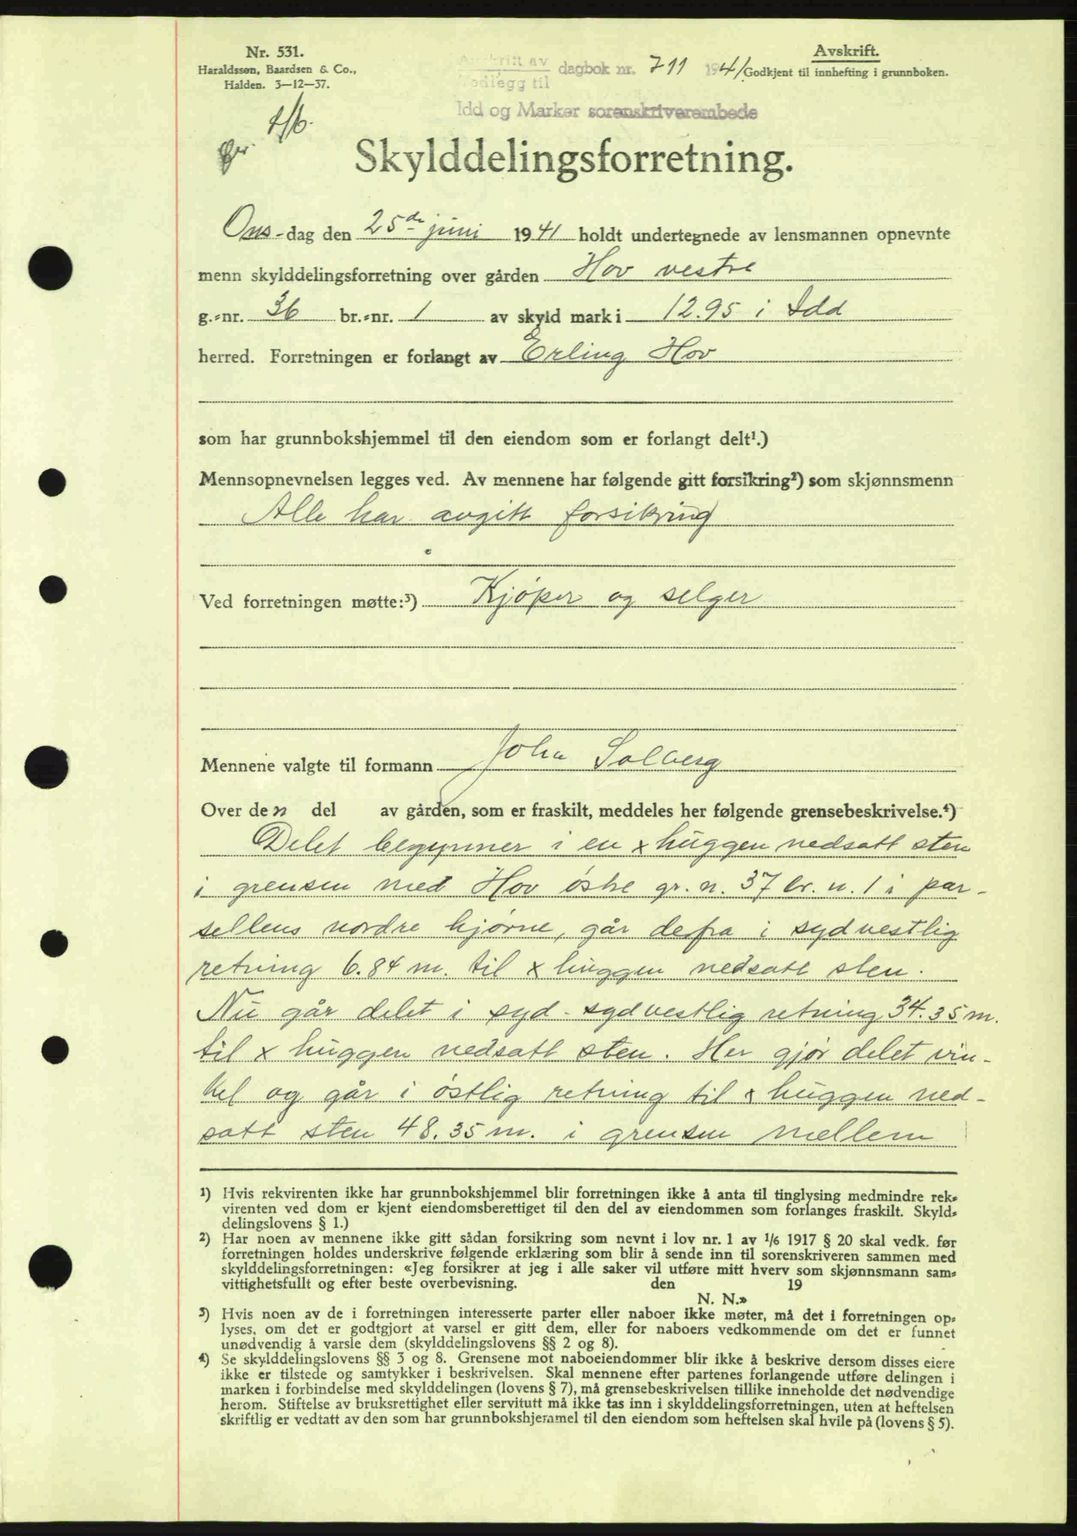 Nr. 531.
Haraldssøn, Baardsen & Co.,
Halden. 3—12—37.
Avskrift av
Vedlegg til
dagbok nr. 711 1941
Idd og Marker sorenskriverembede
Avskrift.
Godkjent til innhefting i grunnboken.
Skylddelingsforretning.
Ons-dag den 25de juni 1941 holdt undertegnede av lensmannen opnevnte
menn skylddelingsforretning over gården Hov vestre
g.-nr. 36 br.-nr. 1 av skyld mark i 12.95 i Idd
herred. Forretningen er forlangt av Erling Hov
som har grunnbokshjemmel til den eiendom som er forlangt delt¹.)
Mennsopnevnelsen legges ved. Av mennene har følgende gitt forsikring²) som skjønnsmenn
Alle har avgitt forsikring
Ved forretningen møtte:³) Kjøper og selger
Mennene valgte til formann John Solberg
Over den del av gården, som er fraskilt, meddeles her følgende grensebeskrivelse.⁴)
Delet begynner i en x huggen nedsatt sten
i grensen med Hov østre gr. n. 37 br. n. 1 i par-
sellens nordre hjørne, går derfra i sydvestlig
retning 6.84 m. til x huggen nedsatt sten.
Nu går delet i syd-sydvestlig retning 34.35 m.
til x huggen nedsatt sten. Her gjør delet vin-
kel og går i østlig retning til x huggen ned-
satt sten 48.35 m. i grensen mellem
¹) Hvis rekvirenten ikke har grunnbokshjemmel blir forretningen ikke å anta til tinglysing medmindre rek-
virenten ved dom er kjent eiendomsberettiget til den del av eiendommen som forlanges fraskilt. Skyld-
delingslovens § 1.)
²) Har noen av mennene ikke gitt sådan forsikring som nevnt i lov nr. 1 av ¹/6 1917 § 20 skal vedk. før
forretningen holdes underskrive følgende erklæring som blir å sende inn til sorenskriveren sammen med
skylddelingsforretningen: «Jeg forsikrer at jeg i alle saker vil utføre mitt hverv som skjønnsmann sam-
vittighetsfullt og efter beste overbevisning. den 19
N. N.»
³) Hvis noen av de i forretningen interesserte parter eller naboer ikke møter, må det i forretningen op-
lyses, om det er godtgjort at varsel er gitt dem, eller for naboers vedkommende om det er funnet
unødvendig å varsle dem (skylddelingslovens §§ 2 og 8).
⁴) Se skylddelingslovens §§ 3 og 8. Grensene mot naboeiendommer blir ikke å beskrive dersom disses eiere
ikke er tilstede og samtykker i beskrivelsen. Skal mennene efter partenes forlangende utføre delingen i
marken i forbindelse med skylddelingen (lovens § 7), må grensebeskrivelsen tillike inneholde det nødvendige
herom. Stiftelse av bruksrettighet eller servitutt må ikke tas inn i skylddelingsforretningen, uten at heftelsen
skriftlig er vedtatt av den som har grunnbokshjemmel til den eiendom som heftelsen skal hvile på (lovens § 5).